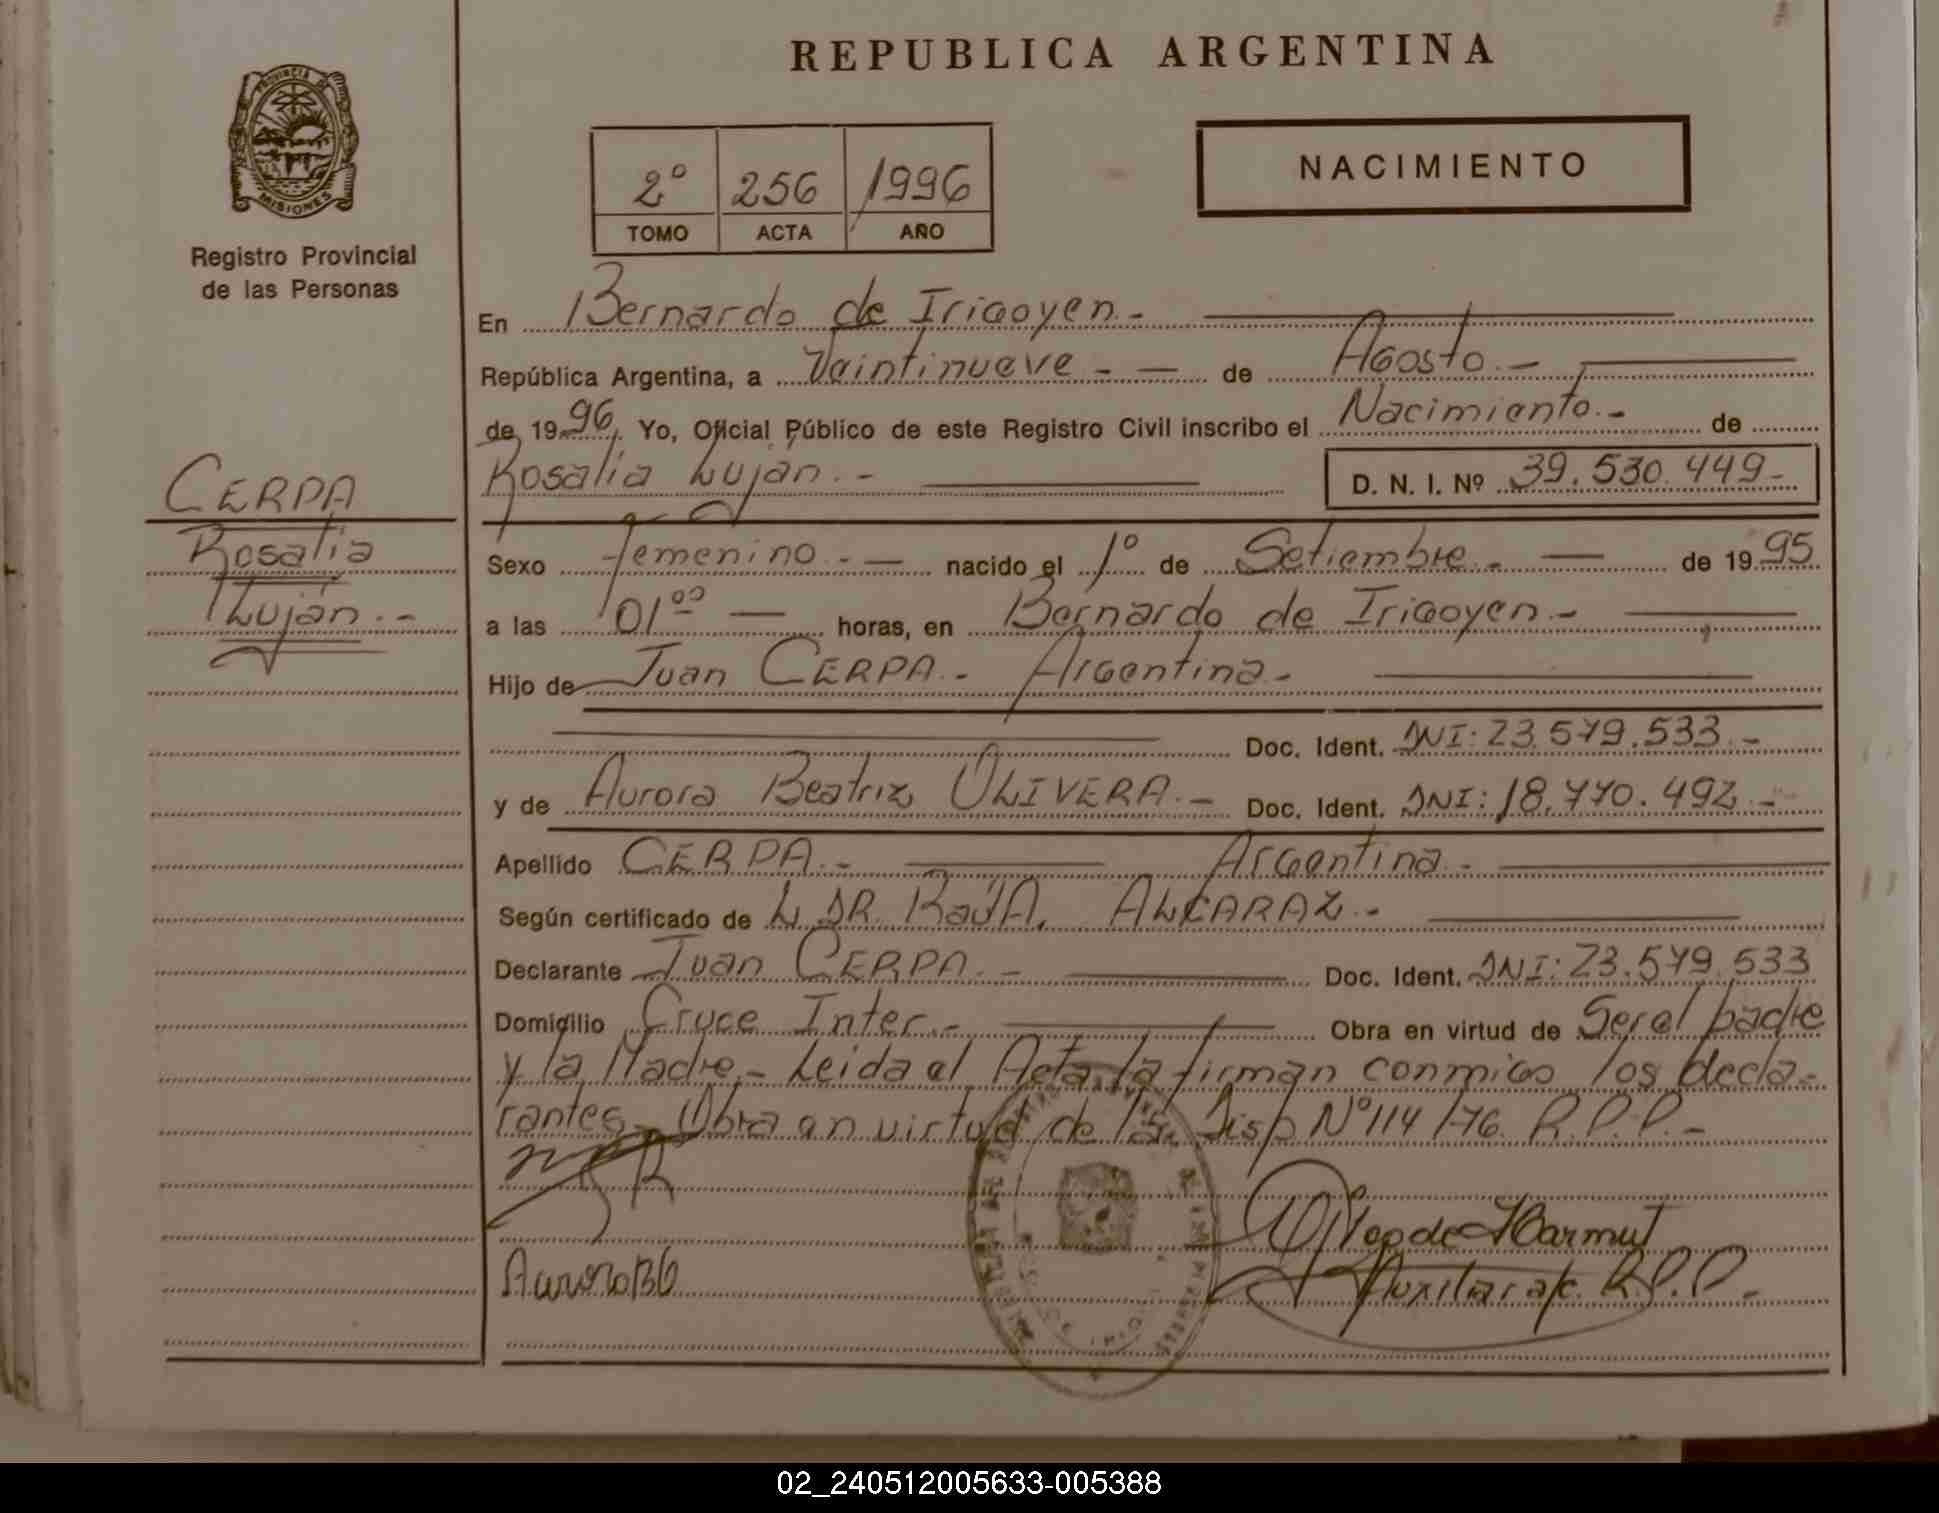 REPUBLICA ARGENTINA
PROVINCIA DE
MISIONES
Registro Provincial
de las Personas
2º 256 1996
TOMO ACTA AÑO
NACIMIENTO
En Bernardo de Irigoyen.-
República Argentina, a Veintinueve.- de Agosto.-
de 1996. Yo, Oficial Público de este Registro Civil inscribo el Nacimiento.- de
Rosalia Luján.- D. N. I. Nº 39.530.449-
CERPA
Rosalia
Luján.-
Sexo femenino.- nacido el 1º de Setiembre.- de 1995
a las 01⁰⁰ horas, en Bernardo de Irigoyen.-
Hijo de Juan CERPA.- Argentina.-
Doc. Ident. DNI: 23.579.533.-
y de Aurora Beatriz OLIVERA.- Doc. Ident. DNI: 18.770.492.-
Apellido CERPA.- Argentina.-
Según certificado de L DR. Raúl A. ALCARAZ.-
Declarante Juan CERPA.- Doc. Ident. DNI: 23.579.533
Domicilio Cruce Inter.- Obra en virtud de Ser el padre
y la Madre.- Leida el Acta la firman conmigo los decla-
rantes.- Obra en virtud de la Disp Nº 114/76. R.P.P.-
de Harmut
Auxiliar a/c. R.P.P.-
02_240512005633-005388